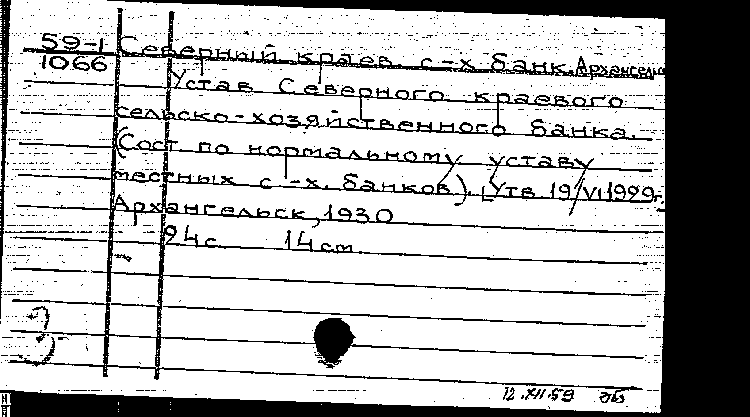 59-1 Северный краев. с-х банк. Архангельск
1066
Устав Северного краевого
сельско-хозяйственного банка.
(Сост. по нормальному уставу
местных с-х. банков). [Утв. 19/VI 1929г.
Архангельск, 1930
24с. 14 см.
З
12.XII.59